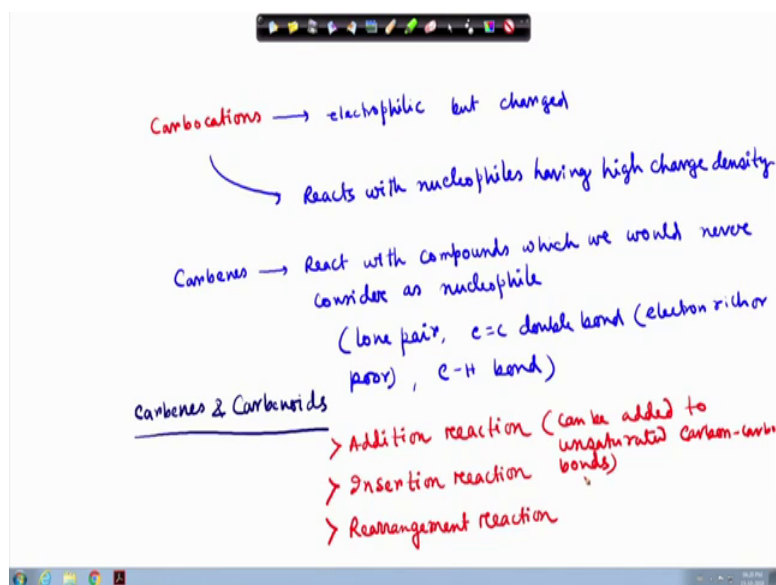 Carbocations → electrophilic but changed
Reacts with nucleophiles having high charge density
Carbenes → React with compounds which we would never
consider as nucleophile
(lone pair, c=c double bond (electron rich or
poor), C-H bond)
Carbenes & Carbenoids
> Addition reaction (can be added to
unsaturated carbon-carbo
bonds)
> Insertion reaction
> Rearrangement reaction